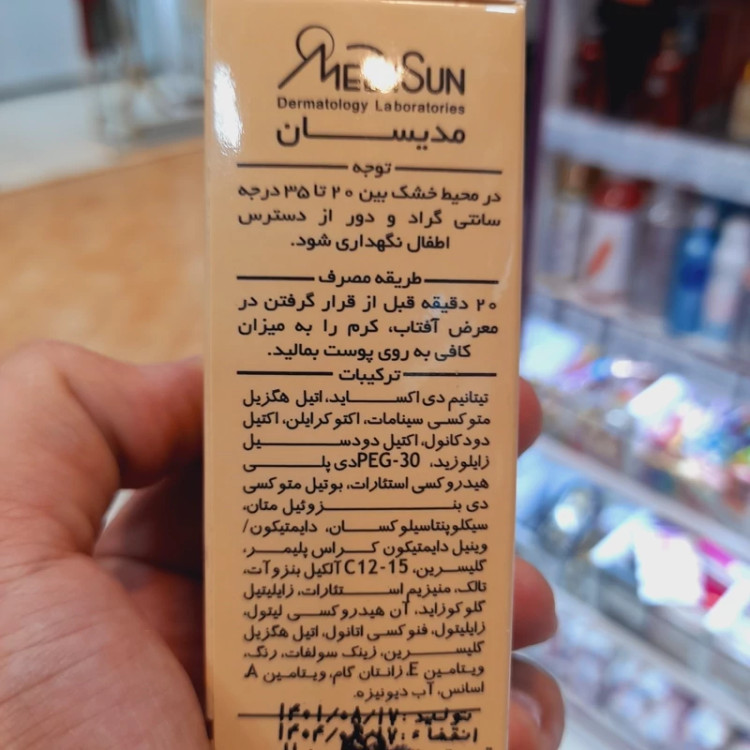 MEDISUN
Dermatology Laboratories
مدیسان
توجه
در محیط خشک بین ۲۰ تا ۳۵ درجه
سانتی گراد و دور از دسترس
اطفال نگهداری شود.
طریقه مصرف
۲۰ دقیقه قبل از قرار گرفتن در
معرض آفتاب، کرم را به میزان
کافی به روی پوست بمالید.
ترکیبات
تیتانیم دی اکساید، اتیل هگزیل
متوکسی سینامات، اکتوکرایلن، اکتیل
دودکانول، اکتیل دودسیل
زایلوزید، PEG-30 دی پلی
هیدروکسی استئارات، بوتیل متوکسی
دی بنزوئیل متان،
سیکلوپنتاسیلوکسان، دایمتیکون/
وینیل دایمتیکون کراس پلیمر،
گلیسرین، C12-15 آلکیل بنزوآت،
تالک، منیزیم استئارات، زایلیتیل
گلوکوزاید، آن هیدروکسی لیتول،
زایلیتول، فنوکسی اتانول، اتیل هگزیل
گلیسرین، زینک سولفات، رنگ،
ویتامین E، زانتان گام، ویتامین A،
اسانس، آب دیونیزه.
تولید : ۱۴۰۱/۰۸/۱۷
انقضاء : ۱۴۰۴/۰۸/۱۷